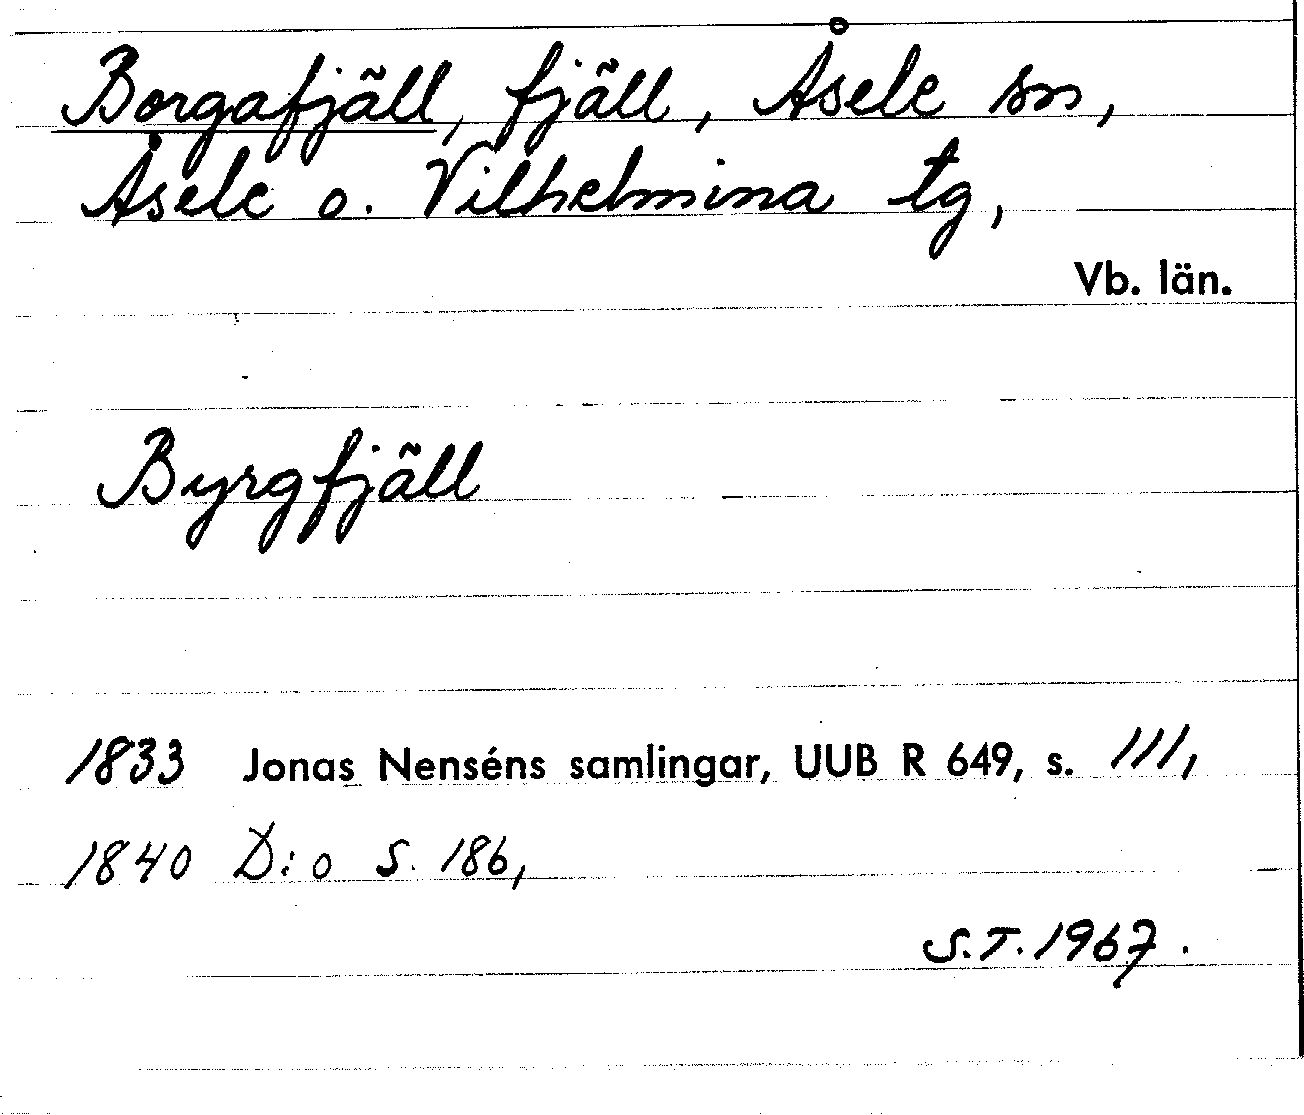 Borgafjäll, fjäll, Åsele sn,
Åsele o. Vilhelmina tg,
Vb. län.
Byrgfjäll
1833 Jonas Nenséns samlingar, UUB R 649, s. 111,
1840 D:o s. 186,
S.T. 1967.